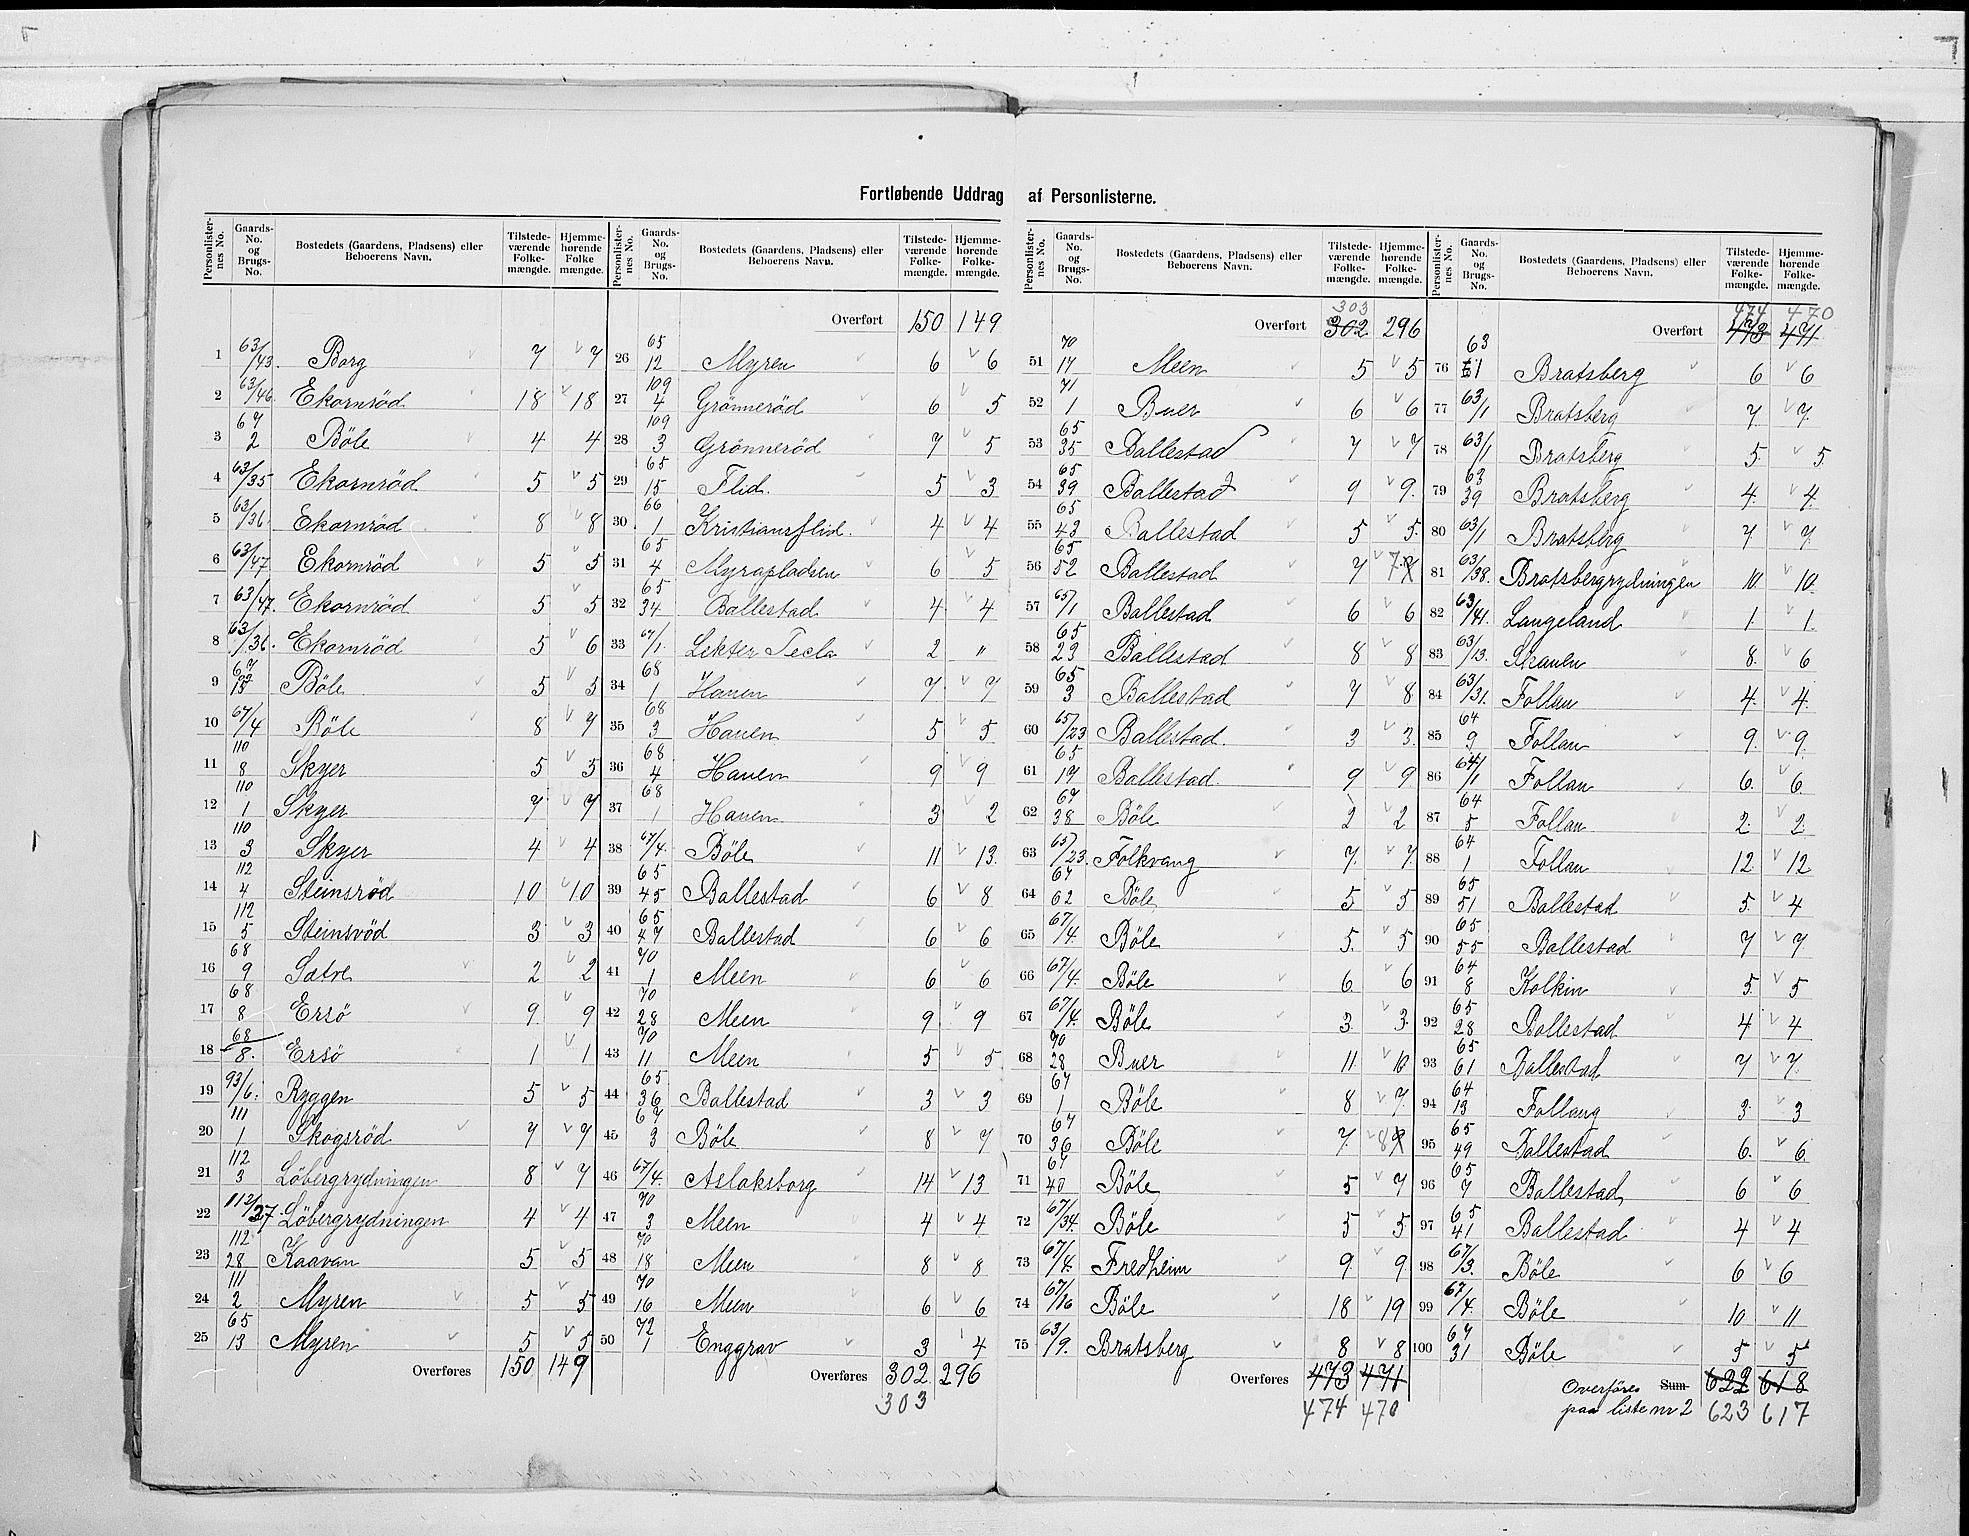 Fortløbende Uddrag af Personlisterne.
Personlister-nes No. | Gaards-No. og Brugs-No. | Bostedets (Gaardens, Pladsens) eller Beboerens Navn. | Tilstede-værende Folke-mængde. | Hjemme-hørende Folke mængde.
1 63/43. Borg 7 7
2 63/46 Ekornrød 18 18
3 67/2 Böle 4 4
4 63/35 Ekornröd 5 5
5 63/36 Ekornröd 8 8
6 63/47 Ekornröd 5 5
7 63/47. Ekornröd 5 5
8 63/36. Ekornröd 5 6
9 Böle 5 5
10 67/4 Böle 8 7
11 110/8 Skyer 5 5
12 110/1 Skyer 7 7
13 110/3 Skyer 4 4
14 112/4 Steinsröd 10 10
15 112/5 Steinsröd 3 3
16 68/9 Sætre 2 2
17 68/8 Ersö 9 9
18 68/8. Ersö 1 1
19 93/6. Ryggen 5 5
20 111/1 Skogsröd 7 7
21 112/3 Löbergrydningen 8 7
22 112/27 Löbergrydningen 4 4
23 112/28 Kaavan 5 5
24 111/2 Myren 5 5
25 65/13 Myren 5 5
Overføres 150 149
Personlister-nes No. | Gaards-No. og Brugs-No. | Bostedets (Gaardens, Pladsens) eller Beboerens Navn. | Tilstede-værende Folke-mængde. | Hjemme-hørende Folke-mængde.
Overført 150 149
26 65/12 Myren 6 6
27 109/4 Grönneröd 6 5
28 109/3 Grönneröd 7 5
29 65/15 Flid. 5 3
30 66/1 Kristiansflid. 4 4
31 65/4 Myrapladsen 6 5
32 65/34 Ballestad 4 4
33 67/1. Lekter Tecla 2 "
34 68/1 Hauen 7 7
35 68/3 Hauen 5 5
36 68/4 Hauen 9 9
37 68/1 Hauen 3 2
38 67/4. Böle 11 13.
39 65/45 Ballestad 6 8
40 65/47 Ballestad 6 6
41 70/1 Meen 6 6
42 70/28 Meen 9 9
43 70/11 Meen 5 5
44 65/36 Ballestad 3 3
45 67/3 Böle 8 7
46 67/4. Aslaksborg 14 13
47 70/3 Meen 4 4
48 70/18 Meen 8 8
49 70/16 Meen 6 6
50 72/1 Enggrav 3 4
Overføres 302 296
303
Personlister-nes No. | Gaards-No. og Brugs-No. | Bostedets (Gaardens, Pladsens) eller Beboerens Navn. | Tilstede-værende Folke-mængde. | Hjemme-hørende Folke-mængde.
303
Overført 302 296
51 70/17 Meen 5 5
52 71/1 Buer 6 6
53 65/35 Ballestad 7 7
54 65/39 Ballestad 9 9.
55 65/43 Ballestad 5 5.
56 65/52 Ballestad 7 7
57 65/1 Ballestad 6 6
58 65/23 Ballestad 8 8
59 65/3 Ballestad 7 8
60 65/23 Ballestad. 3 3.
61 65/19 Ballestad. 9 9
62 67/38 Böle 2 2
63 65/23. Folkvang 7. 7.
64 67/62 Böle 5 5
65 67/4. Böle 5. 5
66 67/4. Böle 6. 6
67 67/4. Böle 3. 3.
68 70/28 Buer 11 10
69 67/1 Böle 8 7.
70 67/36 Böle 7. 8
71 67/40 Böle 5 7
72 67/34. Böle 5 5
73 67/4. Fredheim 9. 9.
74 67/16 Böle 18 19
75 63/9. Bratsberg 8 8
Overføres 473 471
474 470
Personlister-nes No. | Gaards-No. og Brugs-No. | Bostedets (Gaardens, Pladsens) eller Beboerens Navn. | Tilstede-værende Folke-mængde. | Hjemme-hørende Folke-mængde.
474 470
Overført 473 471
76 63/1 Bratsberg 6 6
77 63/1 Bratsberg 7. 7.
78 63/1 Bratsberg 5. 5.
79 63/39 Bratsberg 4. 4.
80 63/1 Bratsberg 7. 7.
81 63/38. Bratsbergrydningen 10. 10.
82 63/41. Langeland 1. 1.
83 63/13. Skauen 8. 6
84 63/31. Follau 4. 4.
85 64/9 Follau 9. 9.
86 64/1 Follau 6. 6.
87 64/5 Follau 2. 2.
88 64/1 Follau 12 12
89 65/51 Ballestad 5. 4
90 65/55 Ballestad 7 7
91 64/8 Kolkin 5. 5
92 65/28 Ballestad 4 4
93 65/61 Ballestad 7 7.
94 64/13 Follaug 3. 3
95 65/49 Ballestad 6. 6
96 65/7 Ballestad 6 6
97 65/41 Ballestad 4 4
98 67/3. Böle 6 6
99 67/4. Böle 10 11
100 67/31 Böle 5 5
Overføres Sum 622 618
paa liste nr 2 623 617